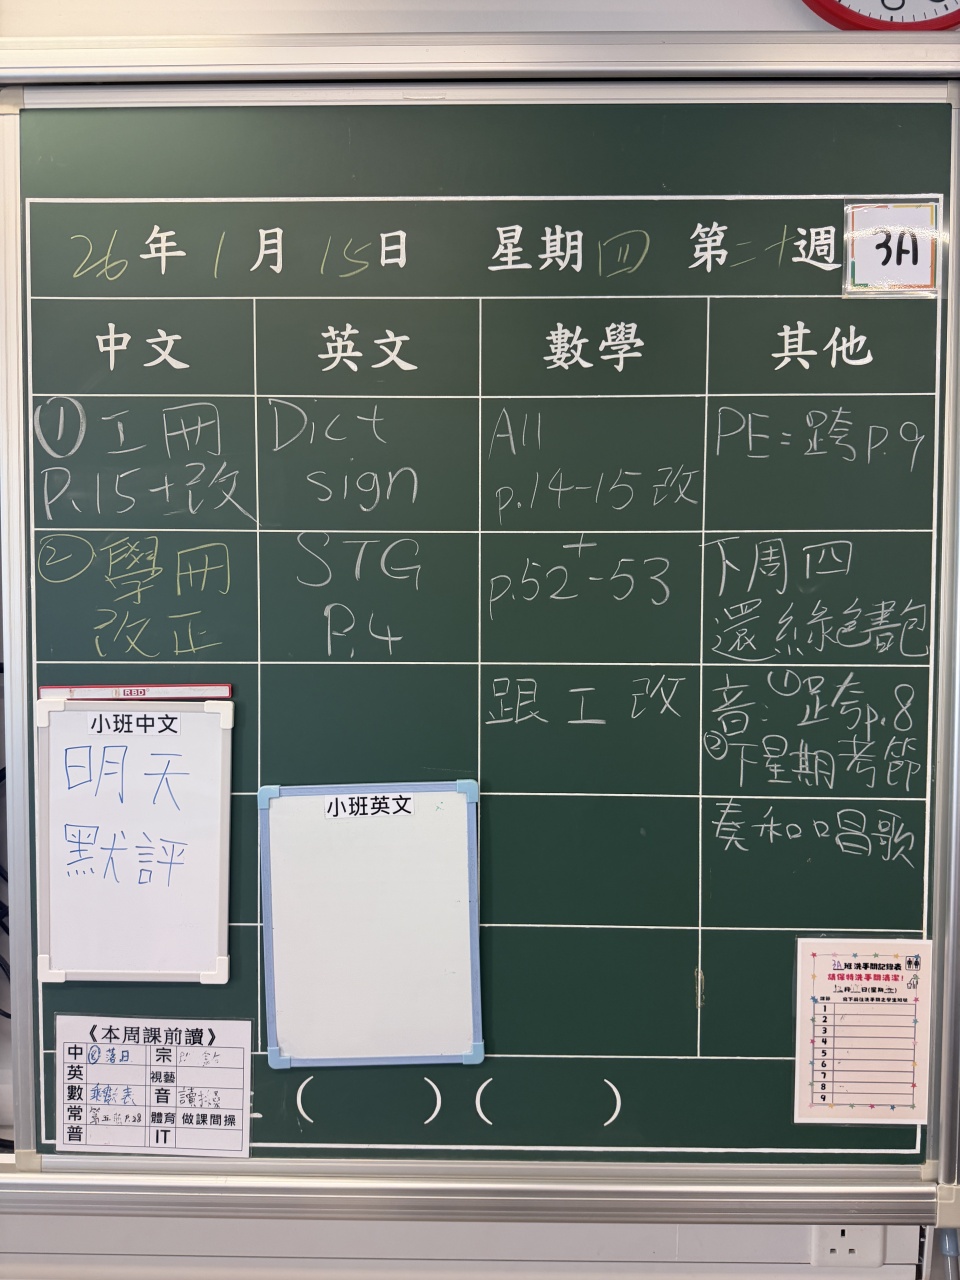 26年1月15日 星期四 第二十週 3A
中文 英文 數學 其他
①工冊
P.15+改
Dict
sign
All
p.14-15改
PE:跨p.9
②學冊
改正
STG
P.4
+
p.52-53
下周四
還綠色書包
跟工改
音:①跨p.8
②下星期考節
奏和口唱歌
RBD
小班中文
明天
默評
小班英文
3A班洗手間記錄表
請保持洗手間清潔!
1
2
3
4
5
6
7
8
9
《本周課前讀》
中 ⑧落日 宗
英 視藝
數 乘數表 音
常 第五冊P.28 體育 做課間操
普 IT
( ) ( )